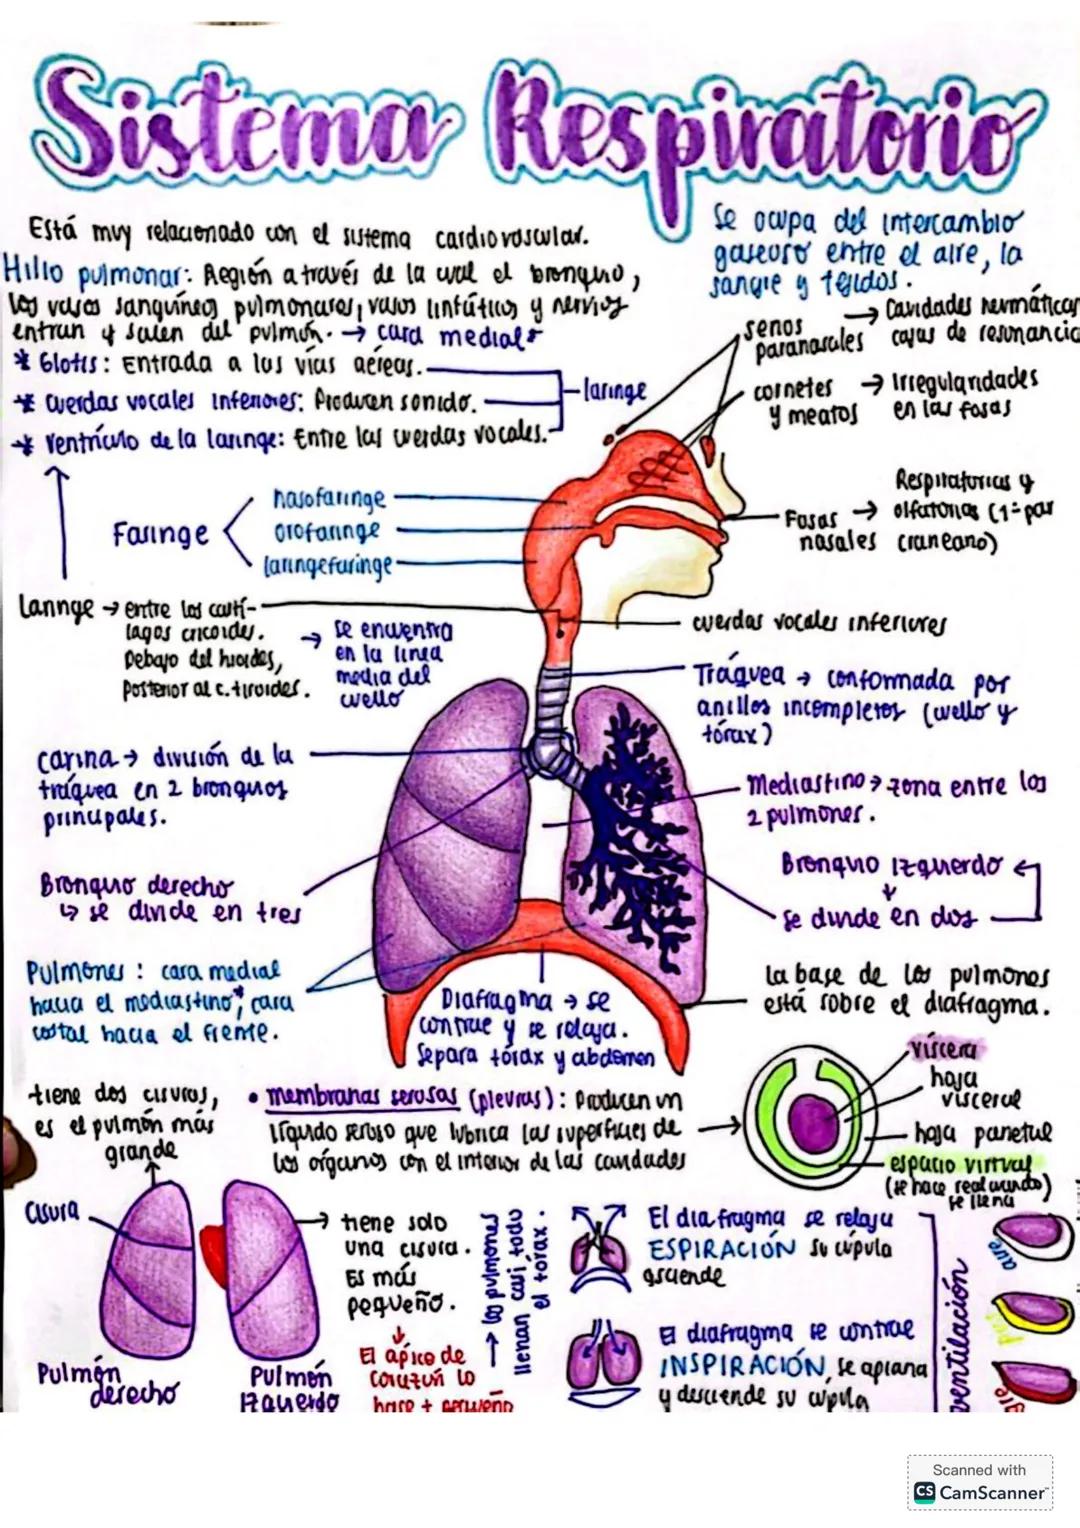 Sistema Respiratorio
Está muy relacionado con el sistema cardiovascular.
Se ocupa del intercambio
gaseoso entre el aire, la
sangre y tejidos.
Hilio pulmonar: Región a través de la cual el bronquio,
los vasos sanguíneos pulmonares, vasos linfáticos y nervios
entran y salen del pulmón. → cara medial
* Glotis: Entrada a las vías aéreas.
* Cuerdas vocales inferiores: Producen sonido.
* Ventrículo de la laringe: Entre las cuerdas vocales.
laringe
senos
paranasales
→ Cavidades neumáticas
cajas de resonancia
cornetes
y meatos
→ Irregularidades
en las fosas
Fosas
nasales
→
Respiratorias y
olfatorias (1º par
craneano)
Faringe
nasofaringe
orofaringe
laringofaringe
Laringe → entre los cartí-
lagos cricoides.
Debajo del hioides,
Posterior al c. tiroides.
→ Se encuentra
en la línea
media del
cuello
cuerdas vocales inferiores
Tráquea → conformada por
anillos incompletos (cuello y
tórax)
carina → división de la
tráquea en 2 bronquios
principales.
Mediastino → zona entre los
2 pulmones.
Bronquio derecho
↳ se divide en tres
Bronquio izquierdo
↓
se divide en dos
Pulmones: cara medial
hacia el mediastino*, cara
costal hacia el frente.
Diafragma → se
contrae y se relaja.
Separa tórax y abdomen
La base de los pulmones
está sobre el diafragma.
• membranas serosas (pleuras): Producen un
líquido seroso que lubrica las superficies de
los órganos con el interior de las cavidades
→
víscera
hoja
visceral
hoja parietal
espacio virtual
(se hace real cuando)
se llena
tiene dos cisuras,
es el pulmón más
grande
Cisura
Pulmón
derecho
Pulmón
Izquierdo
→ tiene solo
una cisura.
Es más
pequeño.
↓
El ápice de
corazón lo
hace + pequeño
→ los pulmones
llenan casi todo
el tórax.
El diafragma se relaja
ESPIRACIÓN su cúpula
asciende
El diafragma se contrae
INSPIRACIÓN, se aplana
y desciende su cúpula
ventilación
aire
Scanned with
CS CamScanner